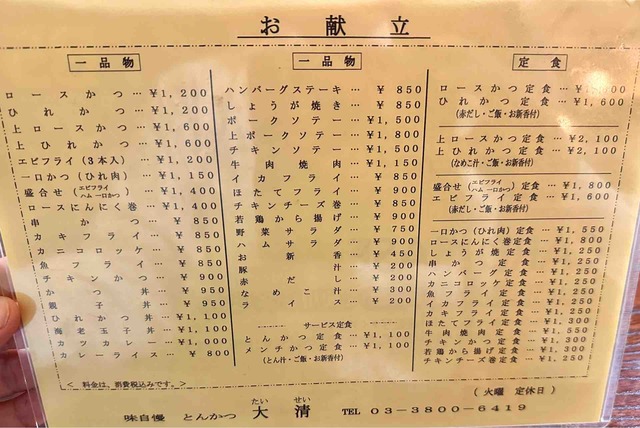 お献立
一品物
ロースかつ…¥1,200
ひれかつ…¥1,200
上ロースかつ…¥1,600
上ひれかつ…¥1,600
エビフライ(3本入)…¥1,200
一口かつ(ひれ肉)…¥1,150
盛合せ(エビフライ ハム 一口かつ)…¥1,400
ロースにんにく巻…¥1,400
串かつ…¥850
カキフライ…¥850
カニコロッケ…¥850
魚フライ…¥850
チキンかつ…¥900
かつ丼…¥950
親子丼…¥950
ひれかつ丼…¥1,100
海老玉子丼…¥1,100
カツカレー…¥1,000
カレーライス…¥800
一品物
ハンバーグステーキ…¥850
しょうが焼き…¥850
ポークソテー…¥1,500
上ポークソテー…¥1,800
チキンソテー…¥1,500
牛肉焼肉…¥1,150
イカフライ…¥850
ほたてフライ…¥900
チキンチーズ巻…¥850
若鶏から揚げ…¥900
野菜サラダ…¥750
ハムサラダ…¥900
お新香…¥450
豚汁…¥200
赤だし…¥200
なめこ汁…¥300
ライス…¥200
サービス定食
とんかつ定食…¥1,100
メンチかつ定食…¥1,100
(とん汁・ご飯・お新香付)
定食
ロースかつ定食…
ひれかつ定食…¥1,600
(赤だし・ご飯・お新香付)
上ロースかつ定食…¥2,100
上ひれかつ定食…¥2,100
(なめこ汁・ご飯・お新香付)
盛合せ(エビフライ ハム 一口かつ)定食…¥1,800
エビフライ定食…¥1,600
(赤だし・ご飯・お新香付)
一口かつ(ひれ肉)定食…¥1,550
ロースにんにく巻定食…¥1,800
しょうが焼定食…¥1,250
串かつ定食…¥1,250
ハンバーグ定食…¥1,250
カニコロッケ定食…¥1,250
魚フライ定食…¥1,250
イカフライ定食…¥1,250
カキフライ定食…¥1,250
ほたてフライ定食…¥1,300
牛肉焼肉定食…¥1,550
チキンかつ定食…¥1,300
若鶏から揚げ定食…¥1,300
チキンチーズ巻定食…¥1,250
< 料金は、消費税込みです。>
(火曜 定休日)
たい せい
味自慢 とんかつ 大清 TEL 03-3800-6419